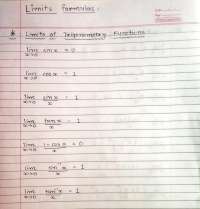 Limits formulas:
* Limits of Trigonometry Functions:
lim x→0 sin x = 0
lim x→0 cos x = 1
lim x→0 sin x / x = 1
lim x→0 tan x / x = 1
lim x→0 1 - cos x / x = 0
lim x→0 sin⁻¹x / x = 1
lim x→0 tan⁻¹x / x = 1